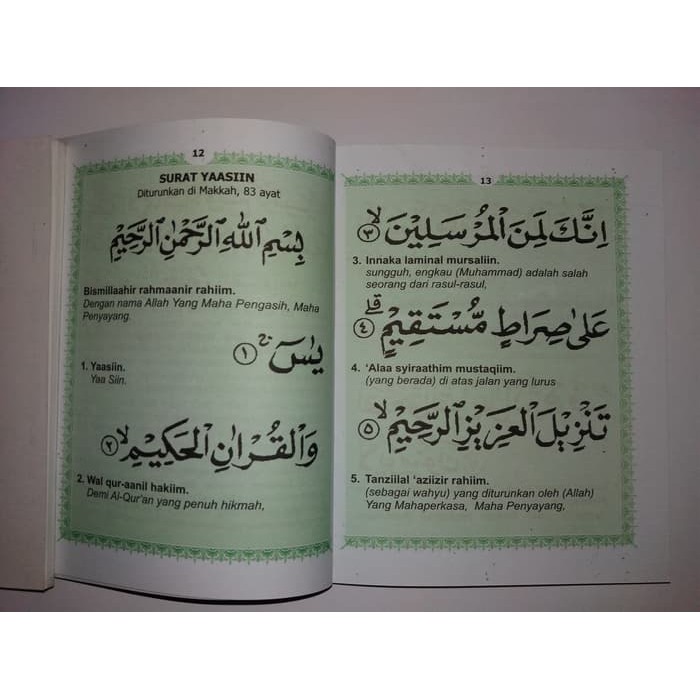 12
SURAT YAASIIN
Diturunkan di Makkah, 83 ayat
بِسْمِ ٱللّٰهِ ٱلرَّحْمٰنِ ٱلرَّحِيْمِ
Bismillaahir rahmaanir rahiim.
Dengan nama Allah Yang Maha Pengasih, Maha
Penyayang.
يٰسۤ ۚ ١
1. Yaasiin.
Yaa Siin.
وَٱلْقُرْاٰنِ ٱلْحَكِيْمِ ۙ ٢
2. Wal qur-aanil hakiim.
Demi Al-Qur'an yang penuh hikmah,
13
اِنَّكَ لَمِنَ ٱلْمُرْسَلِيْنَ ۙ ٣
3. Innaka laminal mursaliin.
sungguh, engkau (Muhammad) adalah salah
seorang dari rasul-rasul,
عَلٰى صِرَاطٍ مُّسْتَقِيْمٍ ۗ ٤
4. 'Alaa syiraathim mustaqiim.
(yang berada) di atas jalan yang lurus
تَنْزِيْلَ ٱلْعَزِيْزِ ٱلرَّحِيْمِ ۙ ٥
5. Tanziilal 'aziizir rahiim.
(sebagai wahyu) yang diturunkan oleh (Allah)
Yang Mahaperkasa, Maha Penyayang,